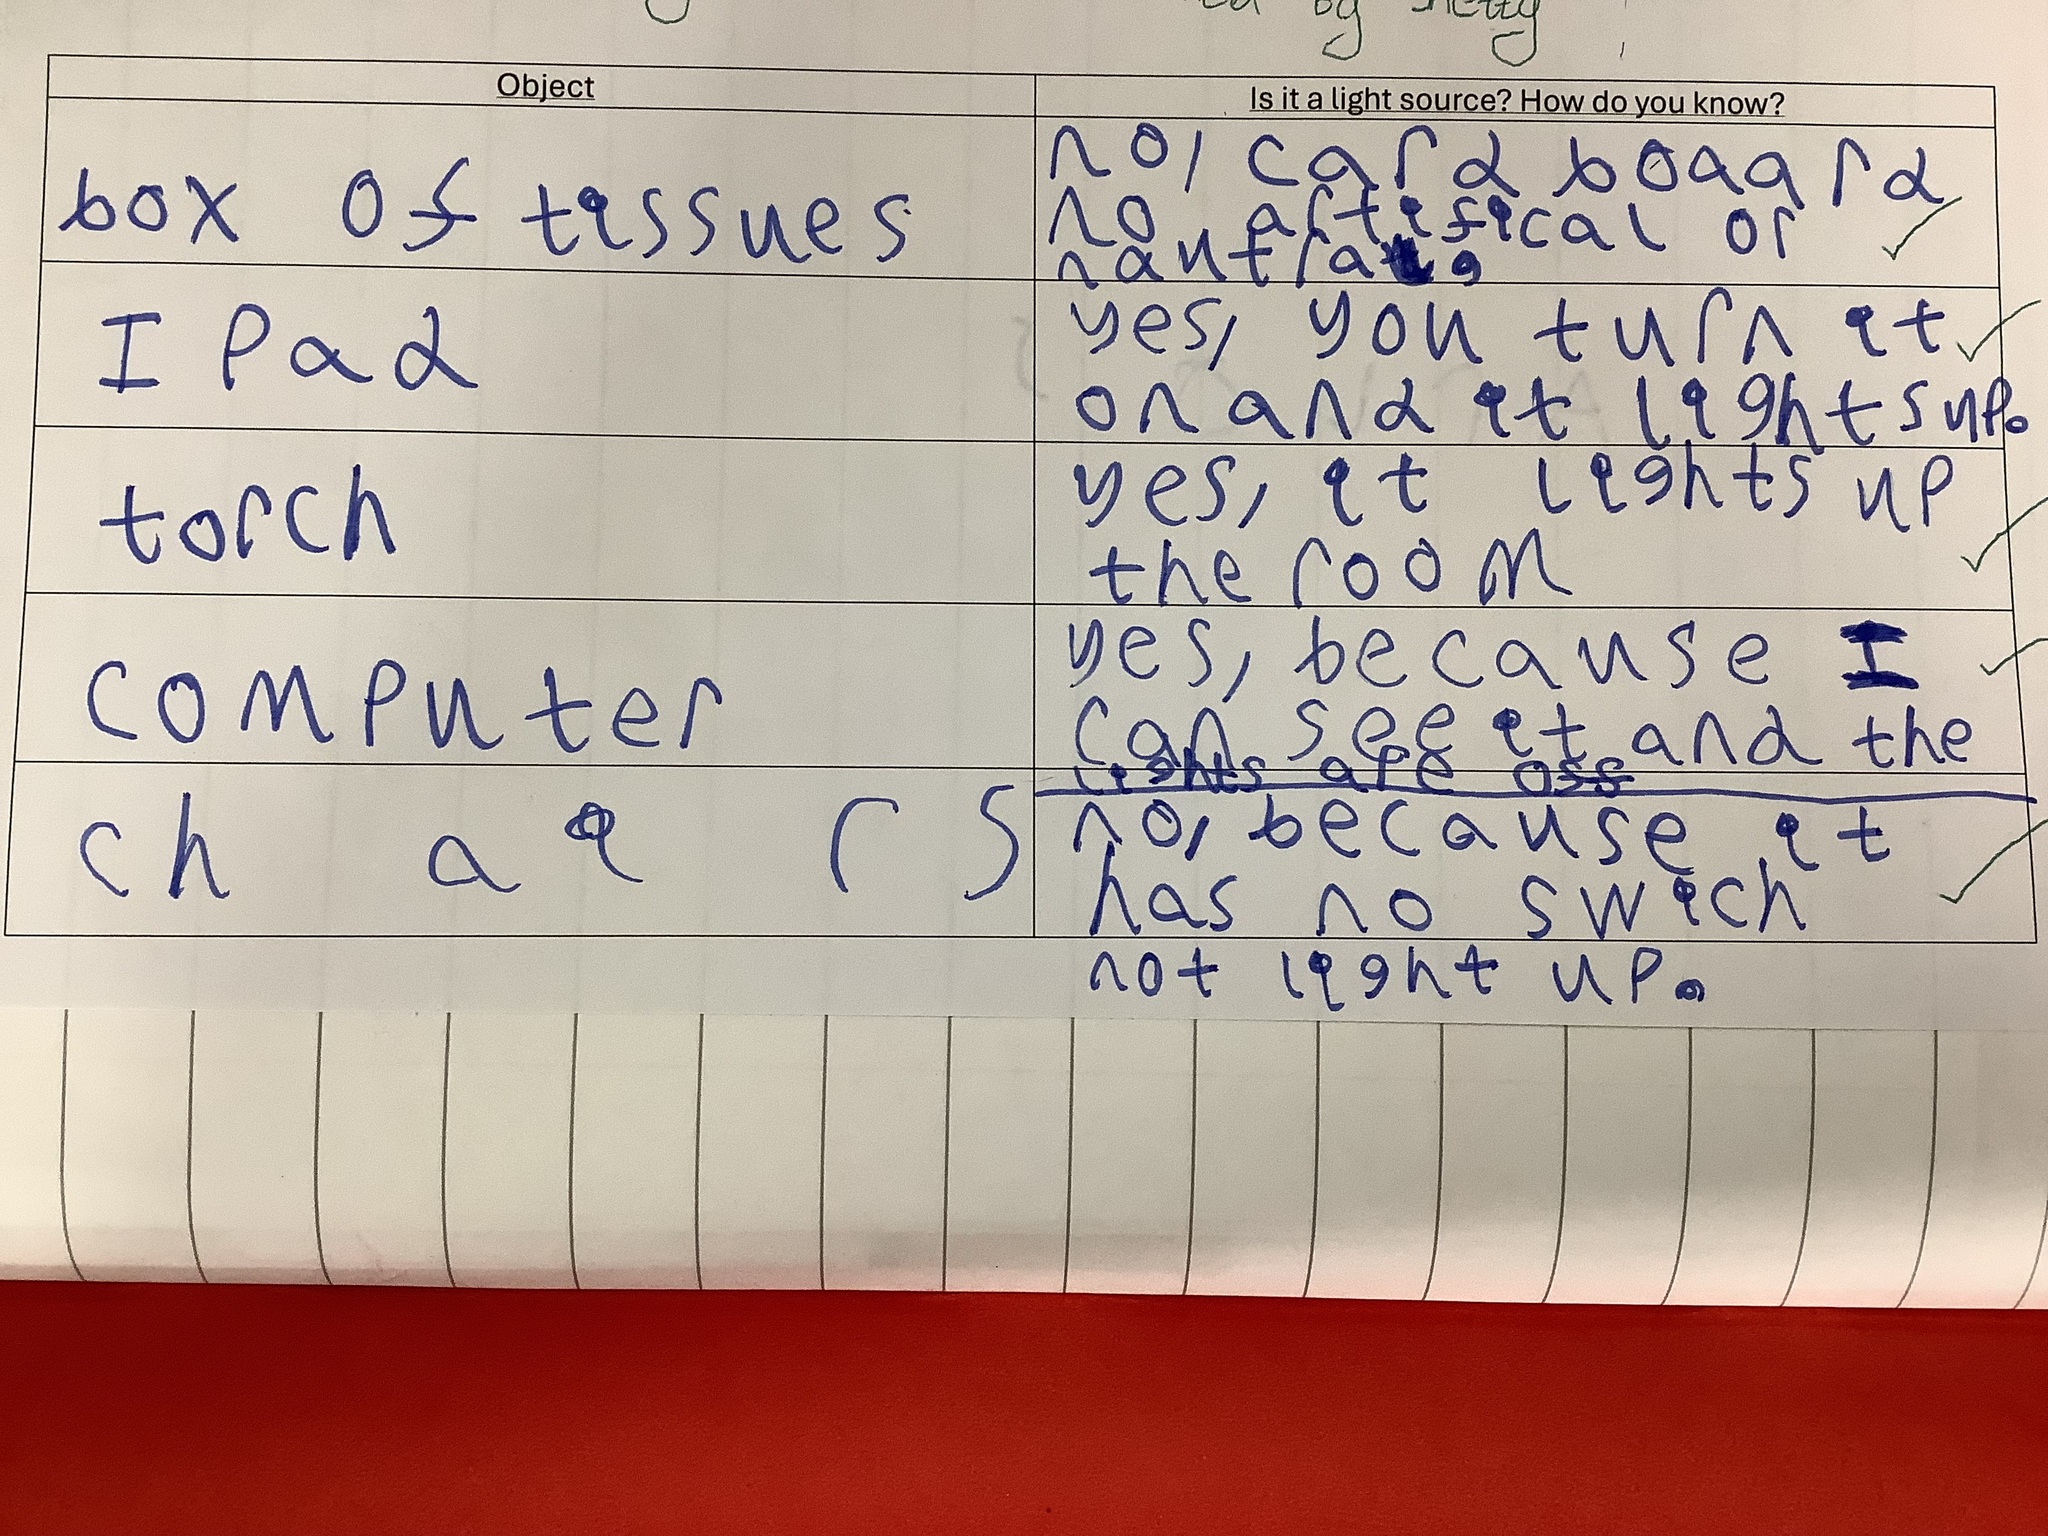 by
Object
Is it a light source? How do you know?
box of tissues
no, card boaard
no artifical or
I Pad
yes, you turn it
on and it lights up.
torch
yes, it lights up
the room
computer
yes, because I
can see it and the
lights are off
chairs
no, because it
has no swich
not light up.